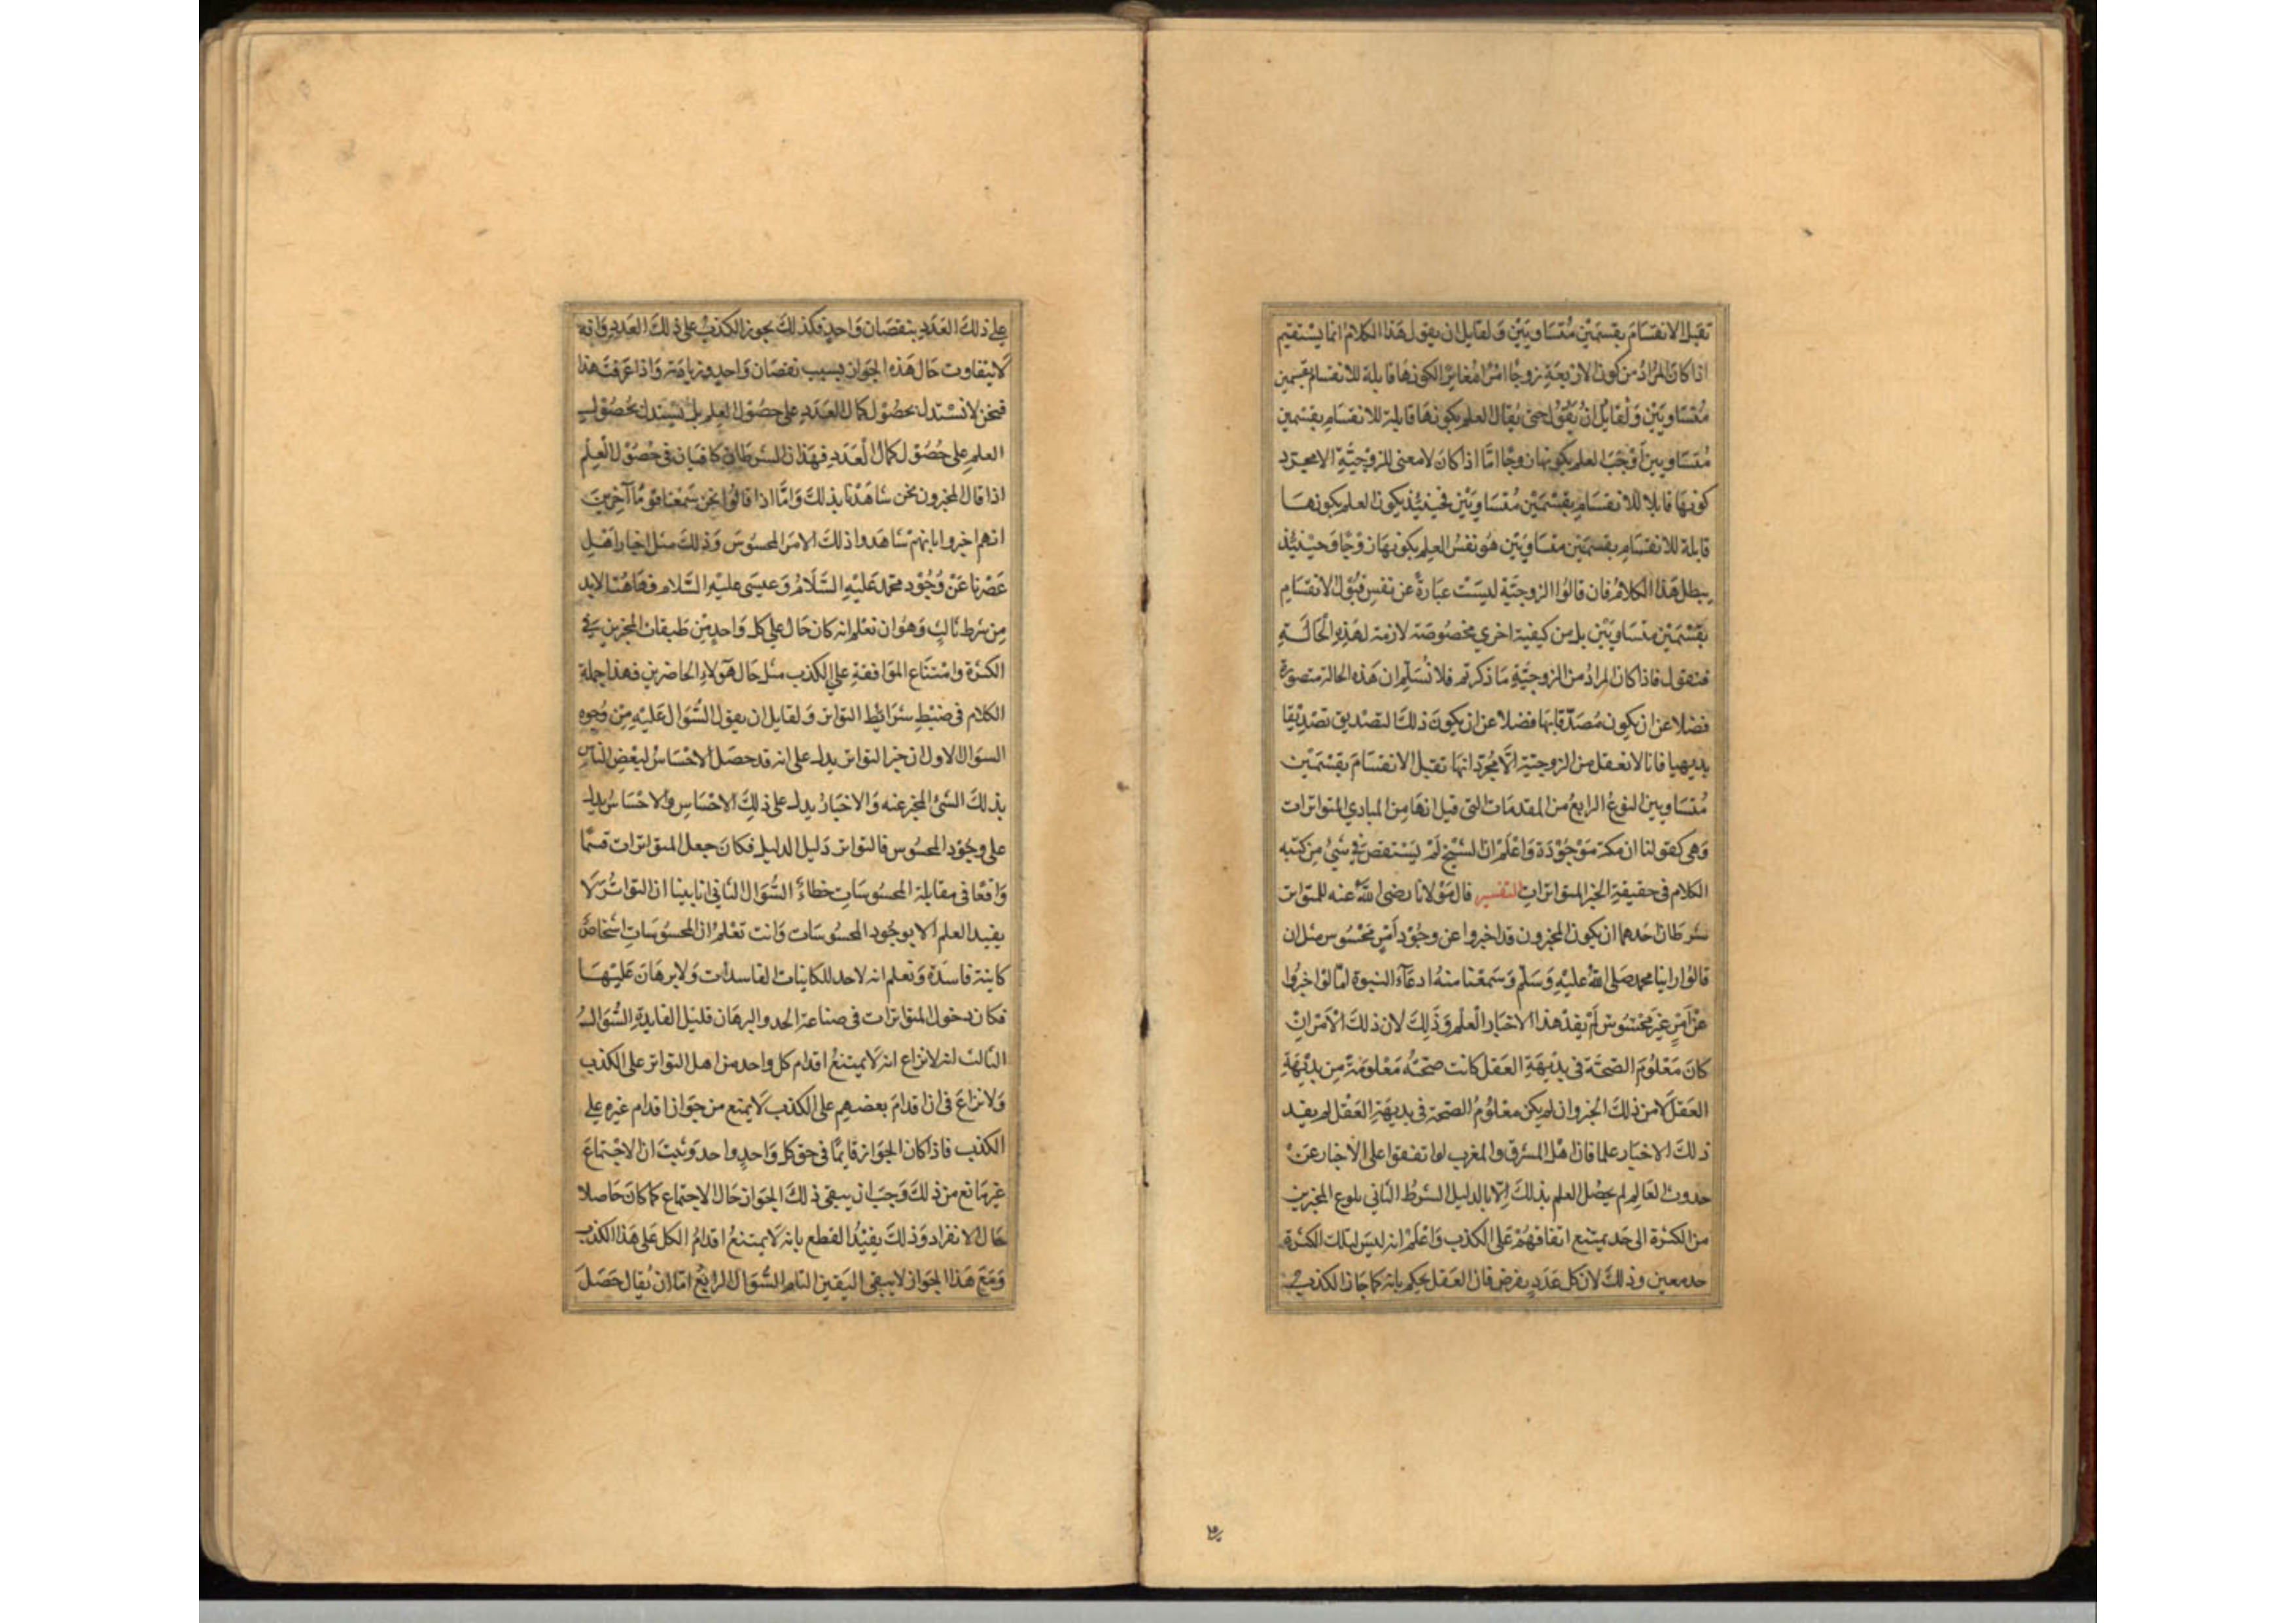 تقبل الانقسام بقسمين متساويين ولقايل ان يقول هذا الكلام انما يستقيم
اذا كان المراد من كون الاربعة زوجًا امرًا مغايرًا لكونها قابلة للانقسام بقسمين
متساويين ولقايل ان يقول حتى يقال العلم بكونها قابلة للانقسام بقسمين
متساويين اوجب العلم بكونها زوجًا امّا اذا كان لا معنى للزوجيّة الا مجرد
كونها قابلا للانقسام بقسمين متساويين فحينئذ يكون العلم بكونها
قابلة للانقسام بقسمين متساويين هو نفس العلم بكونها زوجًا وحينئذ
يبطل هذا الكلام فان قالوا الزوجيّة ليست عبارة عن نفس قبول الانقسام
بقسمين متساويين بل من كيفية اخري مخصوصة لازمة لهذه الحالة
فنقول فاذا كان المراد من الزوجيّة ما ذكرتم فلا نسلّم ان هذه الحالة متصورة
فضلا عن ان يكون مصدّقا بها فضلا عن ان يكون ذلك التصديق تصديقا
بديهيا فانا لا نعقل من الزوجيّة الّا مجرّد انها تقبل الانقسام بقسمين
متساويين النوع الرابع من المقدمات التى قيل انها من المبادي المتواترات
وهى كقولنا ان مكة موجودة واعلم ان الشيخ لم يستقص في شئ من كتبه
الكلام فى حقيقة الخبر المتواترات التفسير قال مولانا رضى الله عنه للمتواتر
شرطان احدهما ان يكون المخبرون قد اخبروا عن وجود أمرٍ محسوس مثل ان
قالوا راينا محمد صلى الله عليه وسلّم وسمعنا منه ادعآء النبوة امّا لو اخبروا
عن أمرٍ غير محسوس لم يفد هذا الاخبار العلم وذلك لان ذلك الامر ان
كان معلوم الصحّة فى بديهة العقل كانت صحّته معلومة من بديهة
العقل لا من ذلك الخبر وان لم يكن معلوم الصحة فى بديهة العقل لم يفد
ذلك الاخبار علما فان اهل المشرق والمغرب لو اتفقوا على الاخبار عن
حدوث العالم لم يحصل العلم بذلك إلّا بالدليل الشرط الثاني بلوغ المخبرين
من الكثرة الى حد يمتنع اتفاقهم على الكذب واعلم انه ليس لتلك الكثرة
حد معين وذلك لان كل عدد يفرض فان العقل يحكم بانه كما جاز الكذب
علي ذلك العدد بنقصان واحد فكذلك يجوز الكذب على ذلك العدد وانه
لا يتفاوت حال هذه الجواز بسبب نقصان واحد وزيادته واذا عرفت هذا
فنحن لا نستدل بحصول كمال العدد على حصول العلم بل يستدل بحصول
العلم على حصول كمال العدد فهذان الشرطان كافيان فى حصول العلم
اذا قال المخبرون نحن شاهدنا بذلك وامّا اذا قالوا نحن سمعنا قومًا آخرين
انهم اخبروا بانهم شاهدوا ذلك الامر المحسوس وذلك مثل اخبار اهل
عصرنا عن وجود محمد عليه السّلام وعيسى عليه السّلام فهاهنا لا بد
من شرط ثالث وهو ان نعلم انه كان حال علي كل واحد من طبقات المخبرين في
الكثرة وامتناع الموافقة علي الكذب مثل حال هؤلاء الحاضرين فهذا جملة
الكلام فى ضبط شرائط التواتر ولقايل ان يقول السّوال عليه من وجوه
السوال الاول ان خبر التواتر يدل على انه قد حصل الاحساس لبعض الناس
بذلك الشئ المخبر عنه والاخبار يدل على ذلك الاحساس والاحساس يدل
على وجود المحسوس فالتواتر دليل الدليل فكان جعل المتواترات قسمًا
واقعًا فى مقابلة المحسوسات خطاءً السّوال الثانى انا بينا ان التواتر لا
يفيد العلم الا بوجود المحسوسات وانت تعلم ان المحسوسات اشخاص
كاينة فاسدة وتعلم انه لا حد للكاينات الفاسدات ولا برهان عليها
فكان دخول المتواترات فى صناعة الحد والبرهان قليل الفايدة السّوال
الثالث انه لا نزاع انه لا يمتنع اقدام كل واحد من اهل التواتر على الكذب
ولا نزاع فى ان اقدام بعضهم على الكذب لا يمنع من جواز اقدام غيره علي
الكذب فاذا كان الجواز قايمًا فى حق كل واحدٍ واحد وثبت ان الاجتماع
غير مانع من ذلك وجب ان يبقى ذلك الجواز حال الاجتماع كما كان حاصلا
حال الانفراد وذلك يفيد القطع بانه لا يمتنع اقدام الكل على هذا الكذب
ومع هذا الجواز لا يبقى اليقين التام السّوال الرابع امّا ان يقال حصل